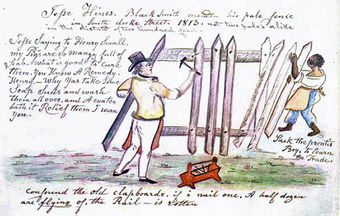 Jesse Hines. Black Smith made his pale fence
in South duke Street. 1813. not two pale's alike
in the distance of two hundred feet.
Jesse Saying to Henry Small,
my Pigs are so mangy full of
Scab. What is good to cure
them. You Know A Remedy.
Henry — Why Yas take Some
Soap Suds and wash
them all over, and A water
bath it Relief them I warn
You.
Jack the prentis
Boy, to learn
the Trade.
confound the old clapboards. if i nail one. A half dozen
are flying of the Rail — is Rotten